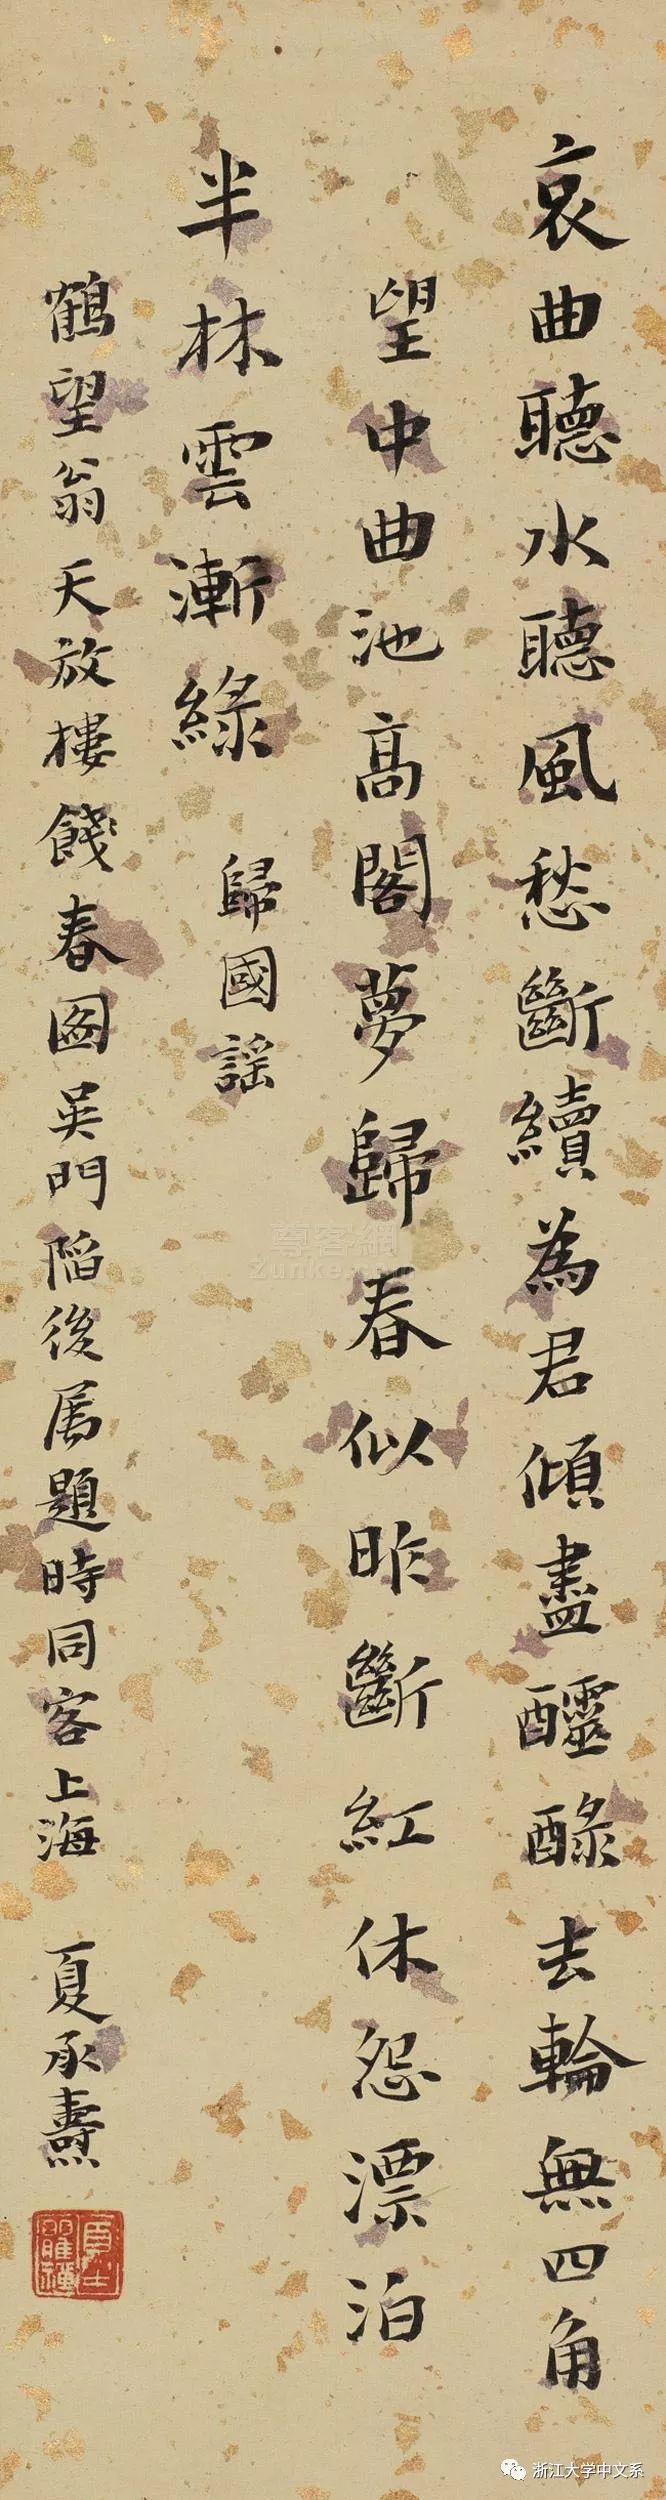 哀曲聽水聽風愁斷續為君傾盡醽醁去輪無四角
望中曲池高閣夢歸春似昨斷紅休怨漂泊
半林雲漸綠 歸國謠
鶴望翁天放樓餞春圖吳門陷後属題時同客上海 夏承燾
尊客網
Zunke
浙江大学中文系